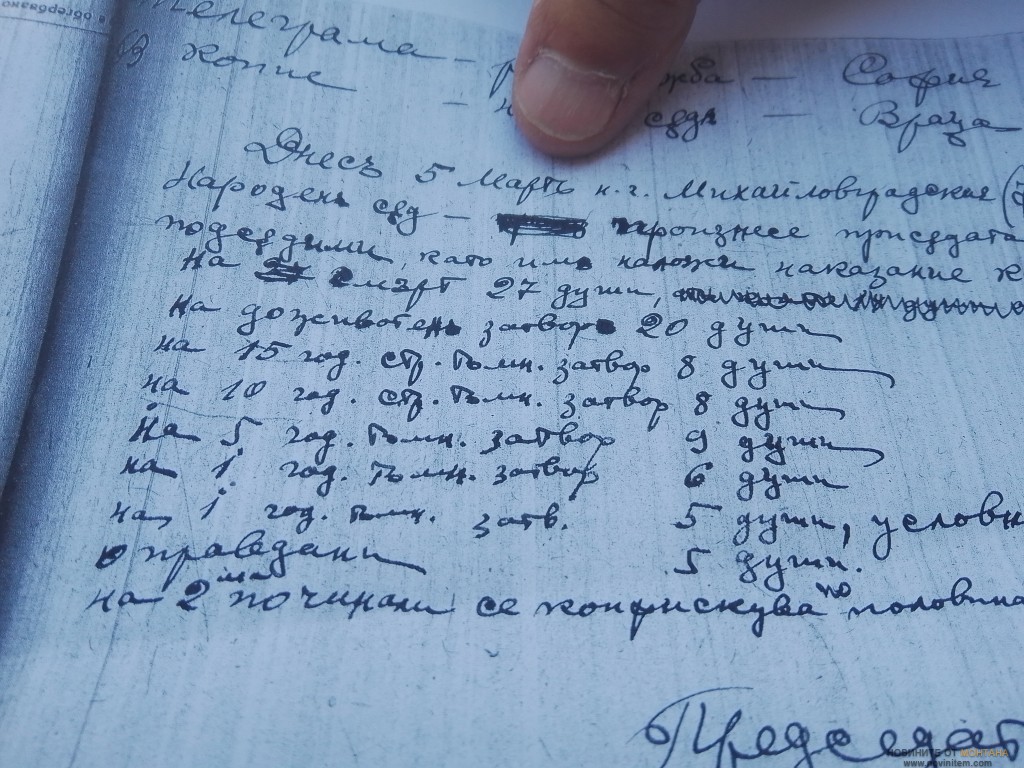 Телеграма — жба — София
В копие — седя — Враца
Днесъ 5 Мартъ н.г. Михайловградския
Народенъ съд — произнесе присъдата
подсъдими, като им наложи наказание
на смърт 27 души,
на доживотенъ затвор 20 души
на 15 год. стр. тъмн. затвор 8 души
на 10 год. стр. тъмн. затвор 8 души
на 5 год. тъмн. затвор 9 души
на 1 год. тъмн. затвор 6 души
на 1 год. тъмн. затв. 5 души, условн
оправдани 5 души.
на 2ма починали се конфискува по половина
Председат
НОВИНИТЕ ОТ МОНТАНА
www.novinitem.com